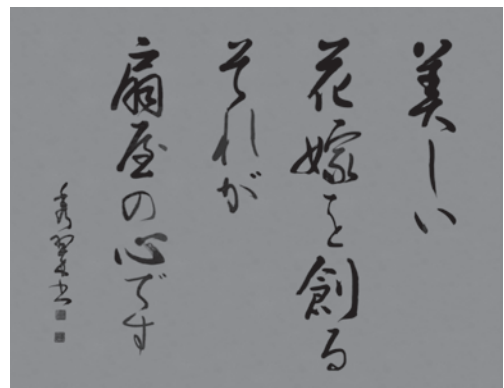 美しい
花嫁を創る
それが
扇屋の心です
秀翠書